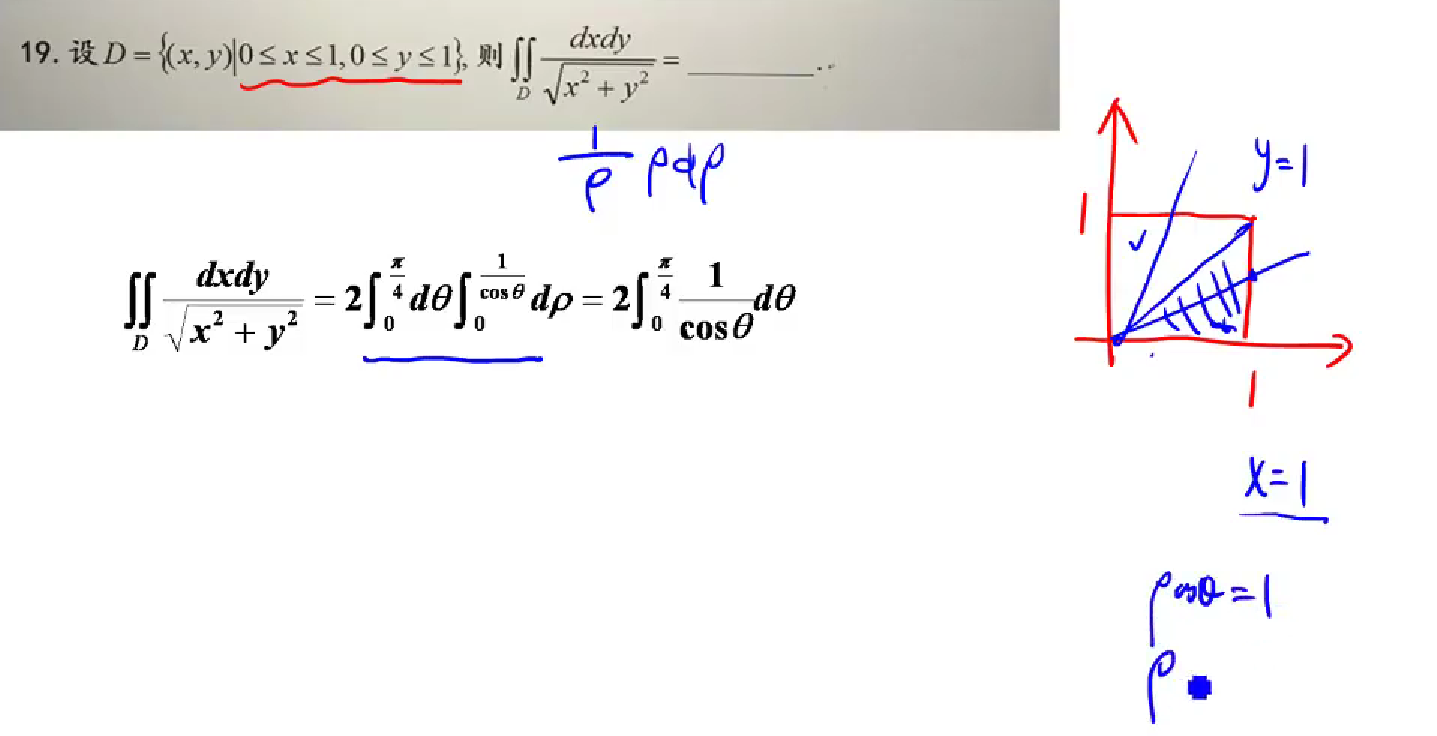 19. 设 D = {(x, y)|0 ≤ x ≤ 1, 0 ≤ y ≤ 1}, 则 ∬_D dxdy/√(x² + y²) = ________.
1/ρ ρdρ
y=1
1
∬_D dxdy/√(x² + y²) = 2∫_0^{π/4} dθ ∫_0^{1/cosθ} dρ = 2∫_0^{π/4} 1/cosθ dθ
1
x=1
ρcosθ=1
ρ